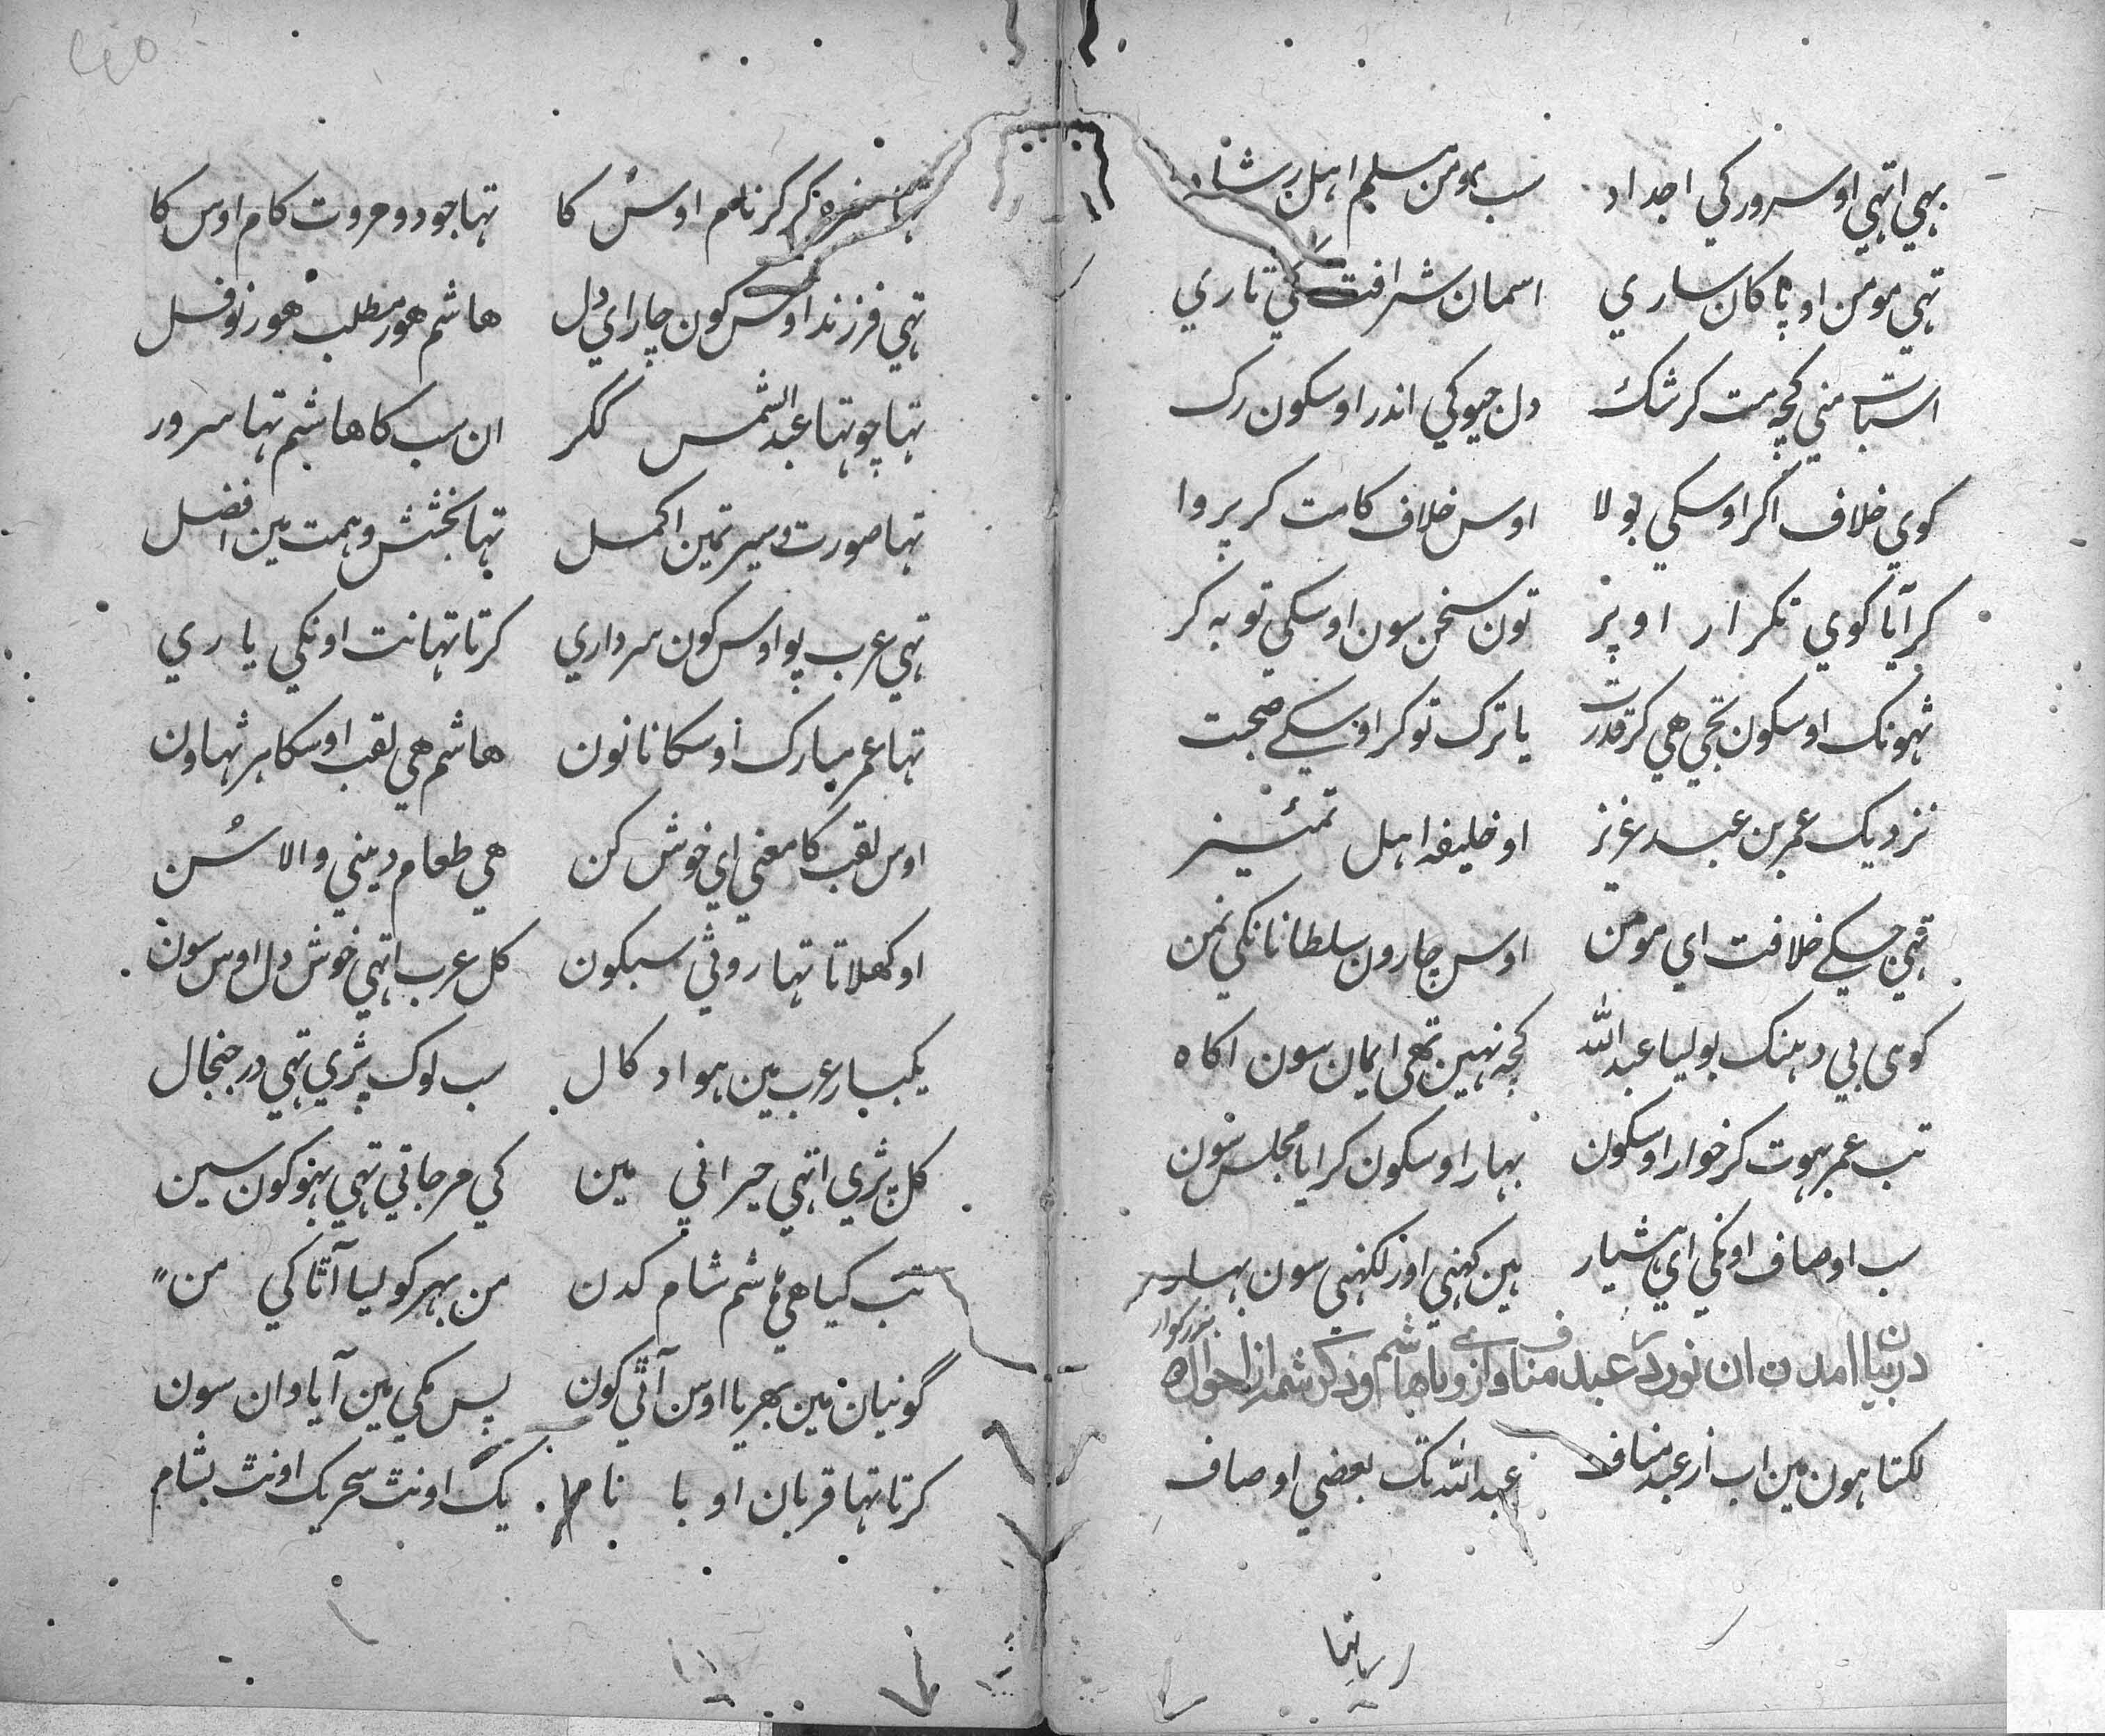 بهي اتهي او سرور كي اجداد سب مومن مسلم اهل رشاد
تهي مومن او پاكان ساري اسمان شرافت كي تاري
اسبات مني كچه مت كر شك دل جيو كي اندر اوسكون رك
كوي خلاف اكر اوسكي بولا اوس خلاف كا مت كر پروا
كر آيا كوي تكرار اوپر تون سخن سون اوسكي توبه كر
تهونك اوسكون تجي هي كر قدرت يا ترك توكر اوسكے صحبت
نزديك عمر بن عبد عزيز او خليفه اهل تمئيز
تهي جسكے خلافت اي مومن اوس چارون سلطانانكي نمن
كوي بي دهنك بوليا عبدالله كچه نهين تهي ايمان سون اكاه
تب عمر بهوت كر خوار اوسكون بهار اوسكون كرايا مجلس سون
سب اوصاف اونكي اي هشيار هين كهني اور لكهني سون بهار
در بيان امدن ان نور در عبد مناف و از وي با هاشم و ذكر شمه از احوال ان بزركوار
لكتا هون مين اب از عبد مناف عبدالله تك بعضي اوصاف
تها مغيره كر كر نام اوس كا تها جود و مروت كام اوس كا
تهي فرزند اوس كون چار اي دل هاشم هور مطلب هور نوفل
تها چوتها عبد الشمس ككر ان سب كا هاشم تها سرور
تها صورت و سيرتمين اكمل تها بخشش و همت مين افضل
تهي عرب پو اوس كون سرداري كرتا تها نت اونكي ياري
تها عمر مبارك اوسكا نانون هاشم هي لقب اوسكا هر ٹهاون
اوس لقب كا معني اي خوش كن هي طعام ديني والا سُن
او كهلاتا تها روٹي سبكون كل عرب اتهي خوش دل اوس سون
يكبار عرب مين هوا دكال سب لوك پڑي تهي در جنجال
كل پڑي اتهي حيراني مين كي مر جاتي تهي بهنو كون سين
تب كيا هي هاشم شام كدن من بهر كو ليا آٹا كي من
گونيان مين بهريا اوس آٹي كون پس مكي مين آيا وان سون
كرتا تها قربان او با نام يك اونٹ سحر يك اونٹ بشام